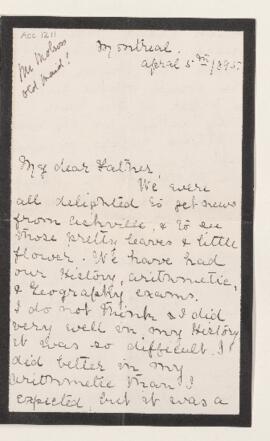 Acc 1211
Mr Molson
old hand!
Montreal.
April 5th 1895.
My dear Father,
We were
all delighted to get news
from Ashville, & to see
those pretty leaves & little
flower. We have had
our History, arithmetic,
& Geography exams.
I do not think I did
very well in my History
it was so difficult. I
did better in my
arithmetic than I
expected, but it was a